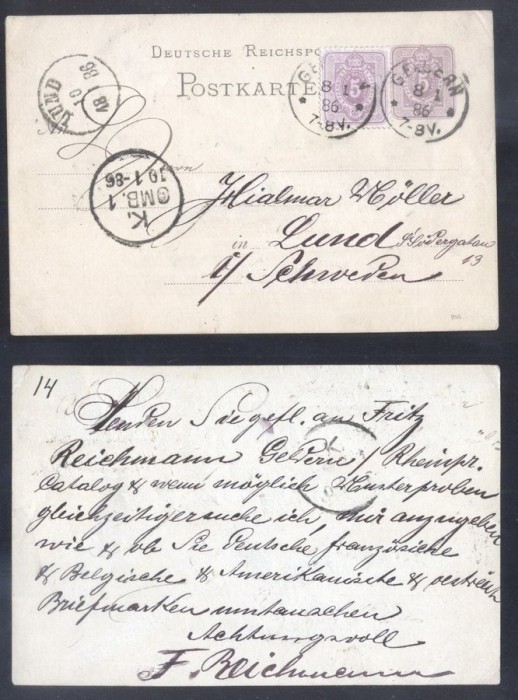 DEUTSCHE REICHSPO
POSTKARTE
5
GELDERN
8 1
86
7-8V.
GELDERN
8 1
86
7-8V.
LUND
10 1 86
K.
OMB. 1
10 1-86
Hialmar Möller
in Lund St Södergatan
13
i/ Schweden
14
Senden Sie gefl. an Fritz
Reichmann Geldern / Rheinpr.
Catalog & wenn möglich Musterproben
gleichzeitig ersuche ich, mir anzugeben
wie & ob Sie Deutsche französische
& Belgische & Amerikanische & oestreich
Briefmarken umtauschen
Achtungsvoll
F. Reichmann